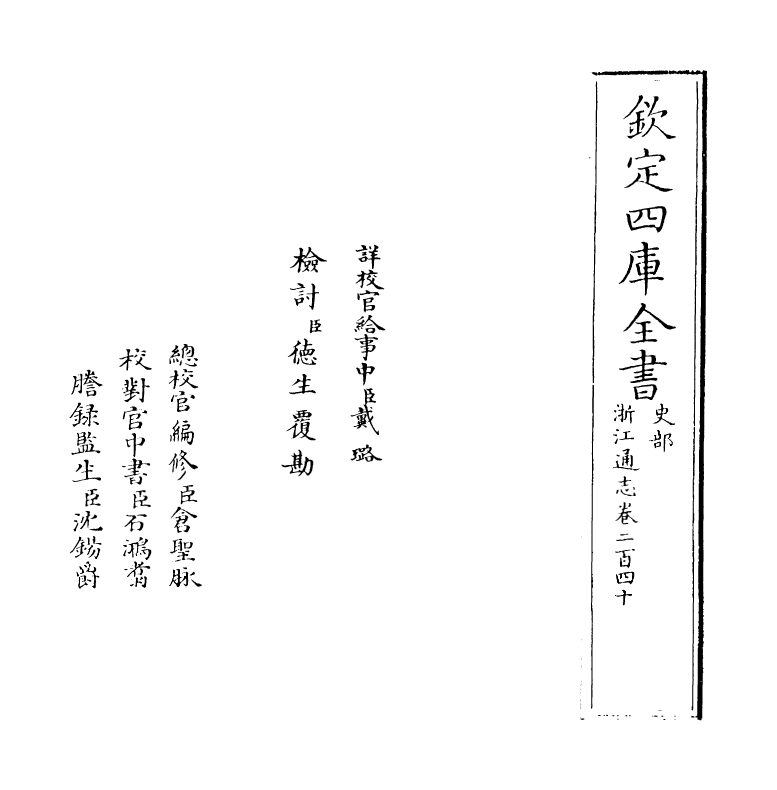 欽定四庫全書
史部
浙江通志卷二百四十
詳校官給事中臣戴璐
檢討臣德生覆勘
總校官編修臣倉聖脉
校對官中書臣石鴻翥
謄録監生臣沈錫爵